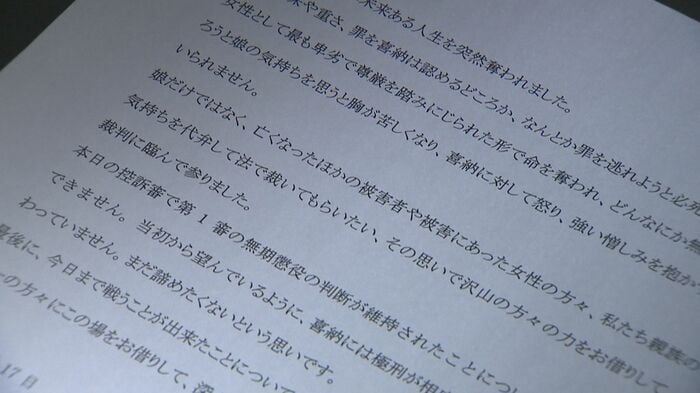 未来ある人生を突然奪われました。
や重さ、罪を喜納は認めるどころか、なんとか罪を逃れようと必死
女性として最も卑劣で尊厳を踏みにじられた形で命を奪われ、どんなにか無
ろうと娘の気持ちを思うと胸が苦しくなり、喜納に対して怒り、強い憎しみを抱か
いられません。
娘だけではなく、亡くなったほかの被害者や被害にあった女性の方々、私たち親族の
気持ちを代弁して法で裁いてもらいたい、その思いで沢山の方々の力をお借りして
裁判に臨んで参りました。
本日の控訴審で第 1 審の無期懲役の判断が維持されたことについ
できません。当初から望んでいるように、喜納には極刑が相
わっていません。まだ諦めたくないという思いです。
最後に、今日まで戦うことが出来たことについて
の方々にこの場をお借りして、深
17 日